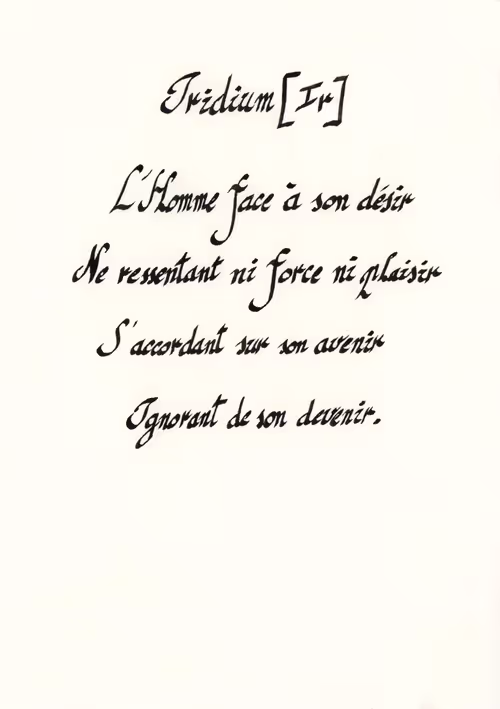 Iridium [Ir]
L'Homme face à son désir
Ne ressentant ni force ni plaisir
S'accordant sur son avenir
Ignorant de son devenir.